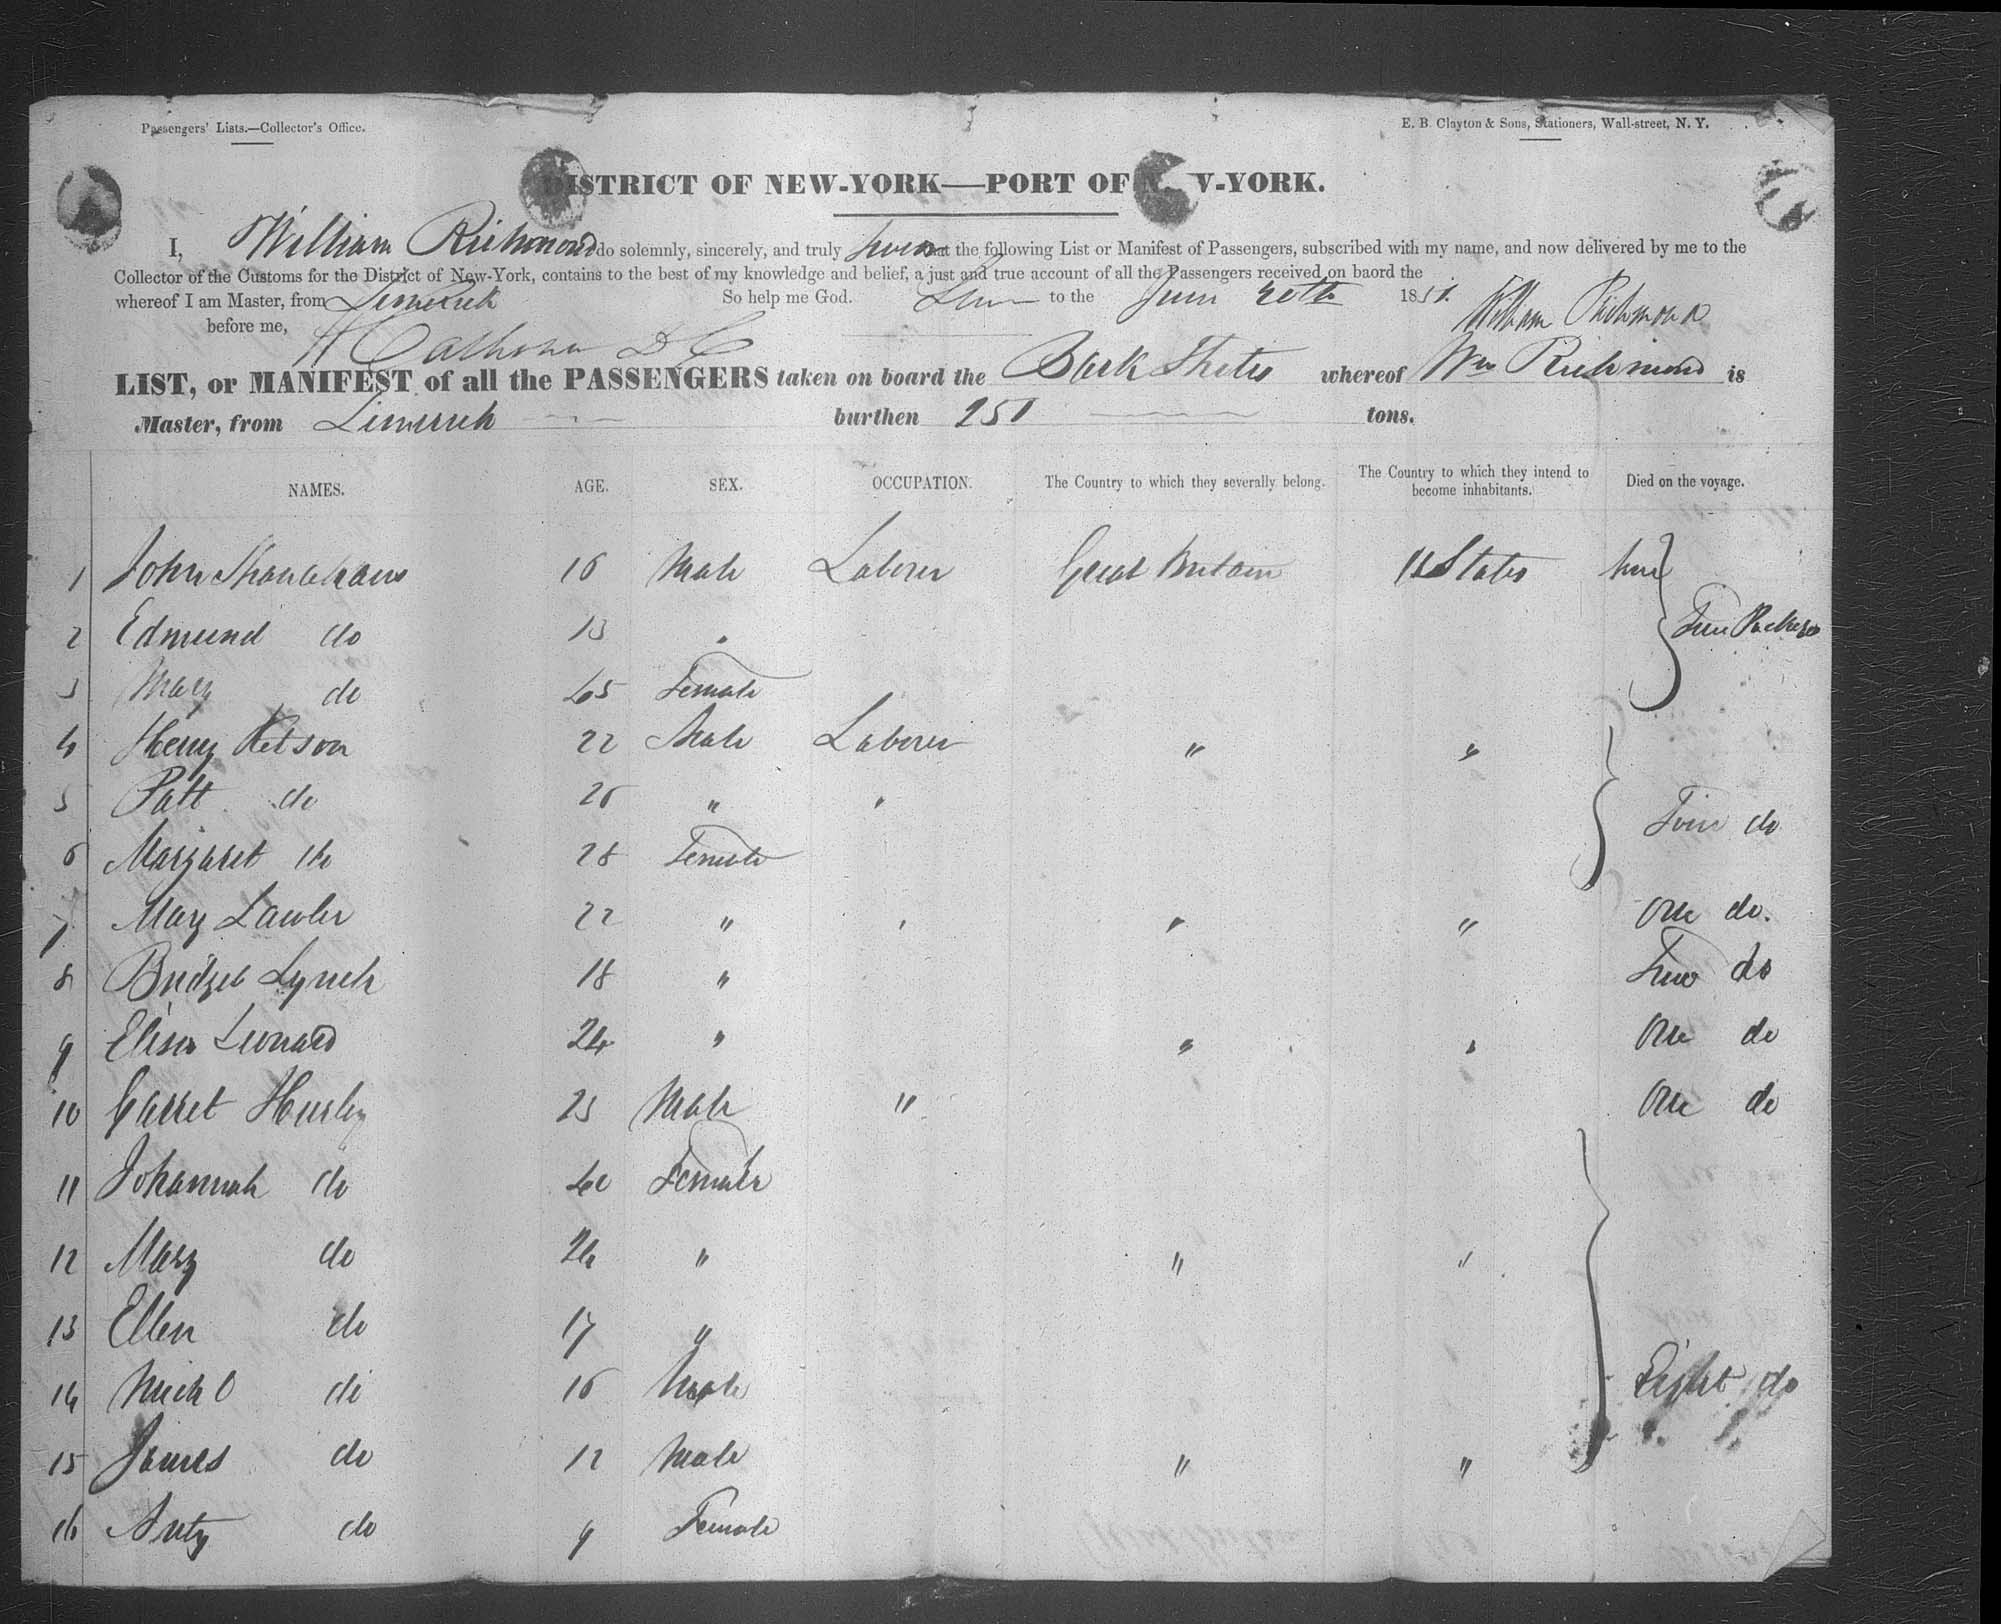 Passengers' Lists.—Collector's Office. E. B. Clayton & Sons, Stationers, Wall-street, N. Y.
DISTRICT OF NEW-YORK—PORT OF N V-YORK.
I, William Richmond do solemnly, sincerely, and truly that the following List or Manifest of Passengers, subscribed with my name, and now delivered by me to the
Collector of the Customs for the District of New-York, contains to the best of my knowledge and belief, a just and true account of all the Passengers received on baord the
whereof I am Master, from Limerick So help me God. to the June 20th 1851. William Richmond
before me, Calhoun D C
LIST, or MANIFEST of all the PASSENGERS taken on board the Bark Thetis whereof Wm Richmond is
Master, from Limerick burthen 251 tons.
NAMES. AGE. SEX. OCCUPATION. The Country to which they severally belong. The Country to which they intend to become inhabitants. Died on the voyage.
1 John 16 Male Laborer Great Britain U States
2 Edmund do 13 "
3 Mary do 45 Female
4 Henry 22 Male Laborer " "
5 Patt do 26 " "
6 Margaret do 28 Female do
7 Mary Lawler 22 " " " " One do.
8 Bridget Lynch 18 " do
9 Eliza Leonard 24 " " " One do
10 Garret Hurley 23 Male " One do
11 Johannah do 40 Female
12 Mary do 24 " " "
13 Ellen do 17 "
14 Michl do 16 Male Eight do
15 James do 12 Male " "
16 do 9 Female